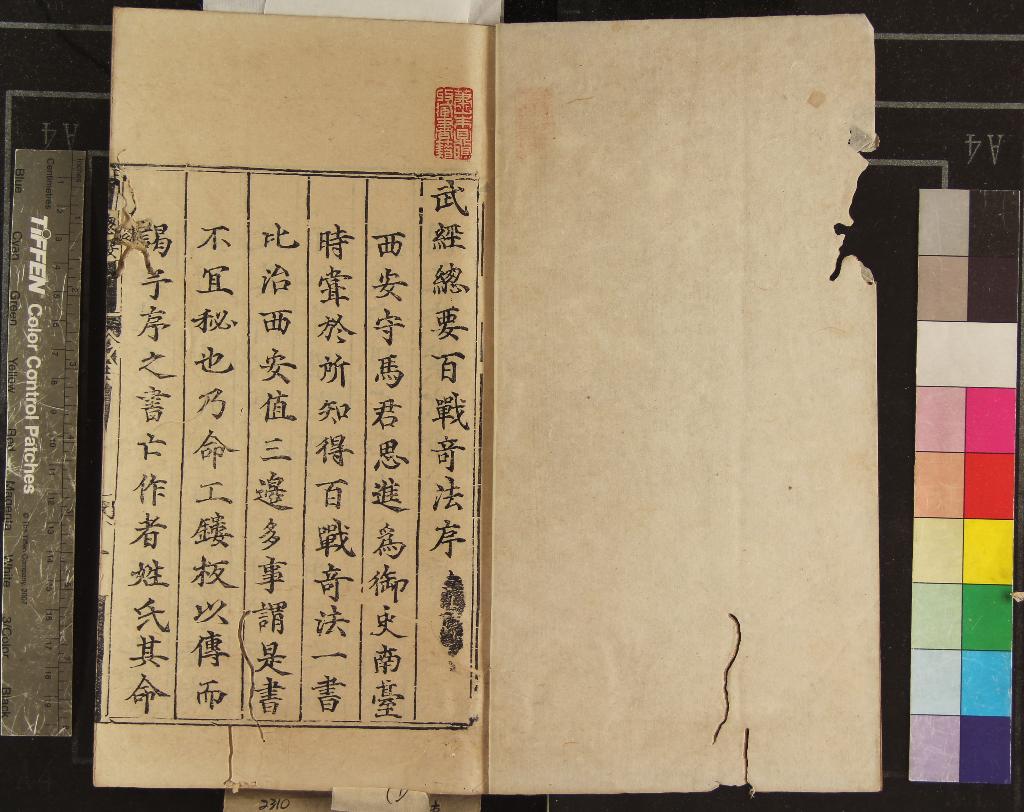 武經總要百戰竒法序
西安守馬君思進爲御史南臺
時甞於所知得百戰竒法一書
比治西安值三邊多事謂是書
不冝秘也乃命工鏤板以傳而
謁予序之書亡作者姓氏其命
TIFFEN Color Control Patches
Centimetres
Inches
Blue
Cyan
Green
Yellow
Red
Magenta
White
3/Color
Black
A4
A4
2310